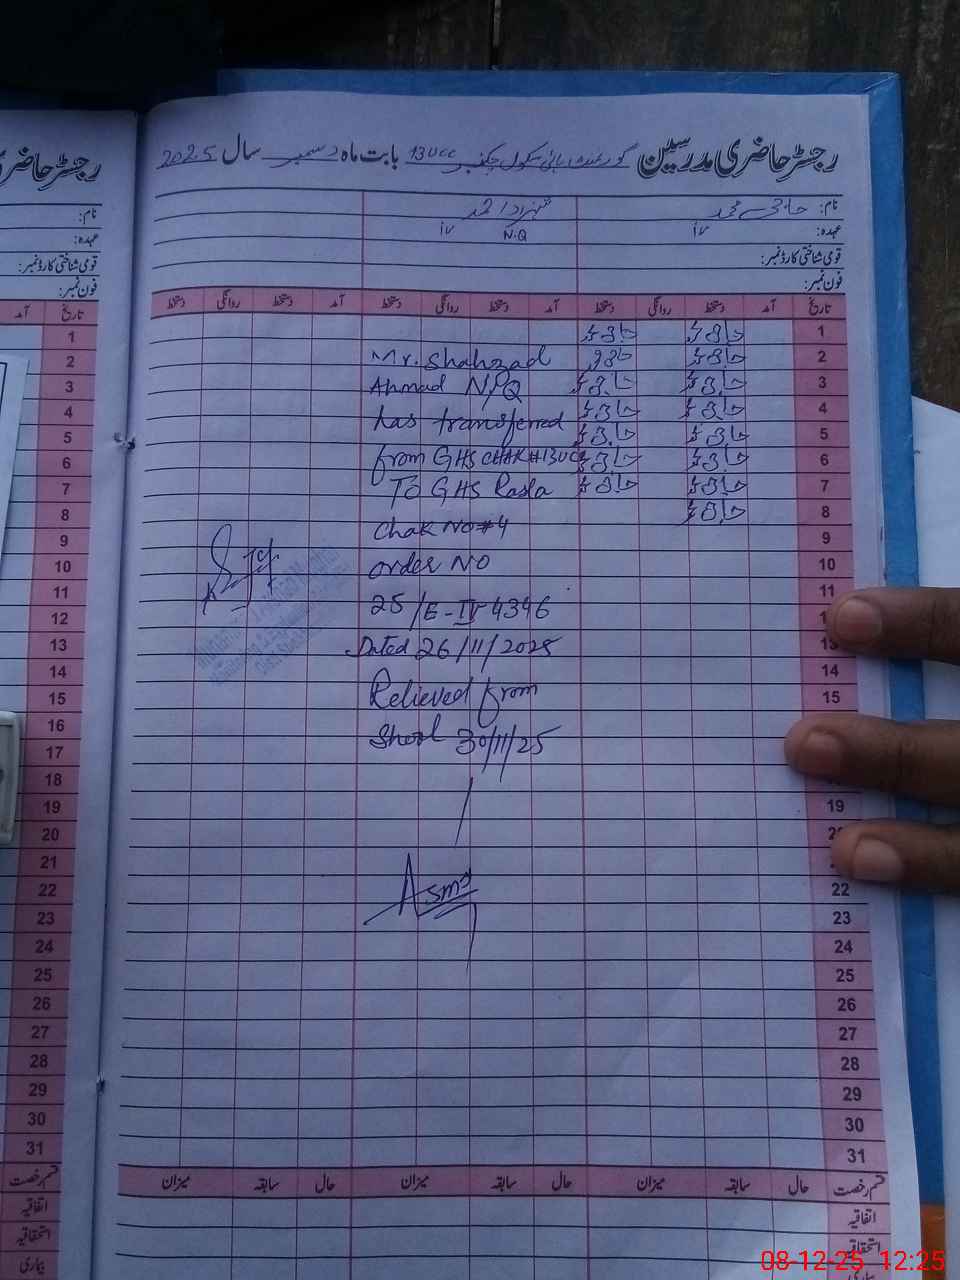 رجسٹر حاضری مدرسین گورنمنٹ ہائی سکول چک نمبر 13UCC بابت ماہ دسمبر سال 2025
نام: حاجی محمد شہزاد احمد
عہدہ: iv N.Q iv
قومی شناختی کارڈ نمبر:
فون نمبر:
تاریخ آمد دستخط روانگی دستخط آمد دستخط روانگی دستخط آمد دستخط روانگی دستخط
1
2 Mr. Shahzad
3 Ahmad N/Q
4 has transferred
5
6 from GHS CHAK#13UCC
7 To GHS Rasla
8 Chak NO#4
9
10 order NO
11
12 25/E-IV 4346
13 Dated 26/11/2025
14
15 Relieved from
16
17 Shool 30/11/25
18
19
20
21
22 Asma
23
24
25
26
27
28
29
30
31
قسم رخصت حال سابقہ میزان حال سابقہ میزان حال سابقہ میزان
اتفاقیہ
استحقاقیہ
رجسٹر حاضری
نام:
عہدہ:
قومی شناختی کارڈ نمبر:
فون نمبر:
تاریخ آمد
1
2
3
4
5
6
7
8
9
10
11
12
13
14
15
16
17
18
19
20
21
22
23
24
25
26
27
28
29
30
31
قسم رخصت
اتفاقیہ
استحقاقیہ
بیماری
08-12-25 12:25